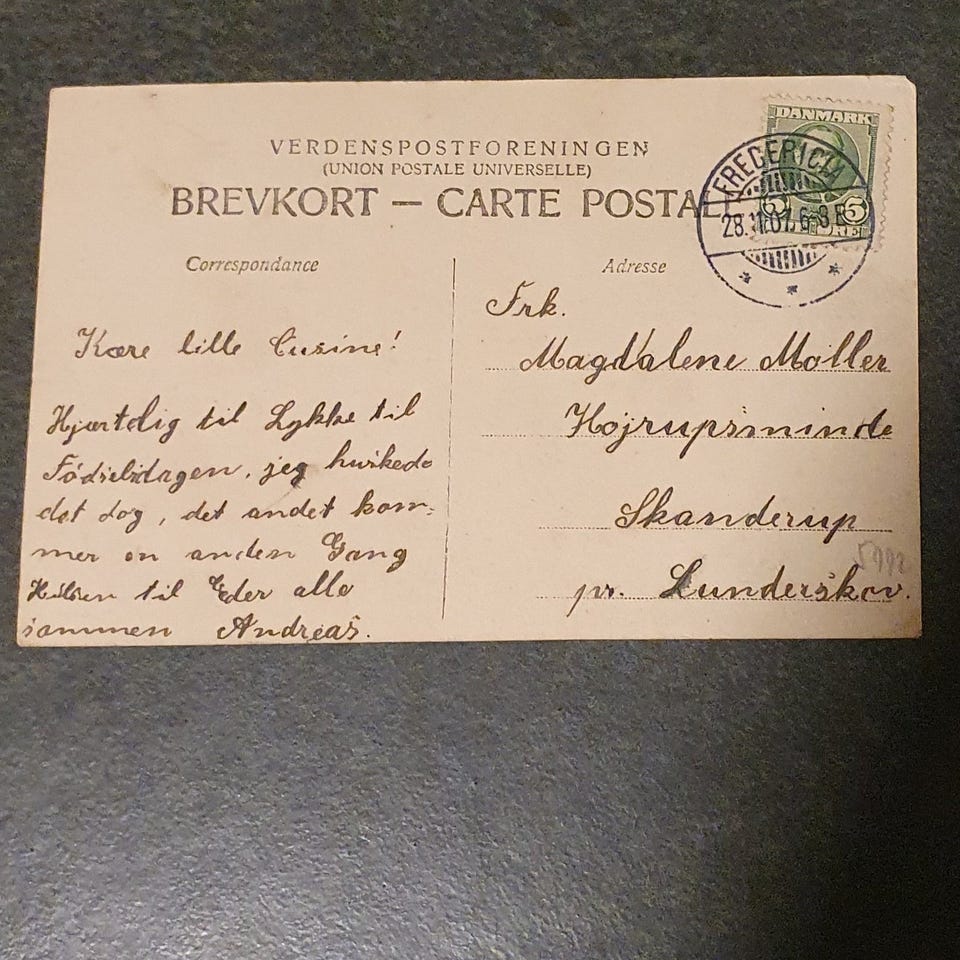 VERDENSPOSTFORENINGEN
(UNION POSTALE UNIVERSELLE)
BREVKORT — CARTE POSTALE
DANMARK
5 5
ØRE
FREDERICIA
28.11.07. 6-8 E
Correspondance
Kære lille Cusine!
Hjærtelig til Lykke til
Fødselsdagen, jeg huskede
det dog, det andet kom=
mer en anden Gang
Hilsen til Eder alle
sammen Andreas.
Adresse
Frk.
Magdalene Møller
Højrupsminde
Skanderup
pr. Lunderskov.